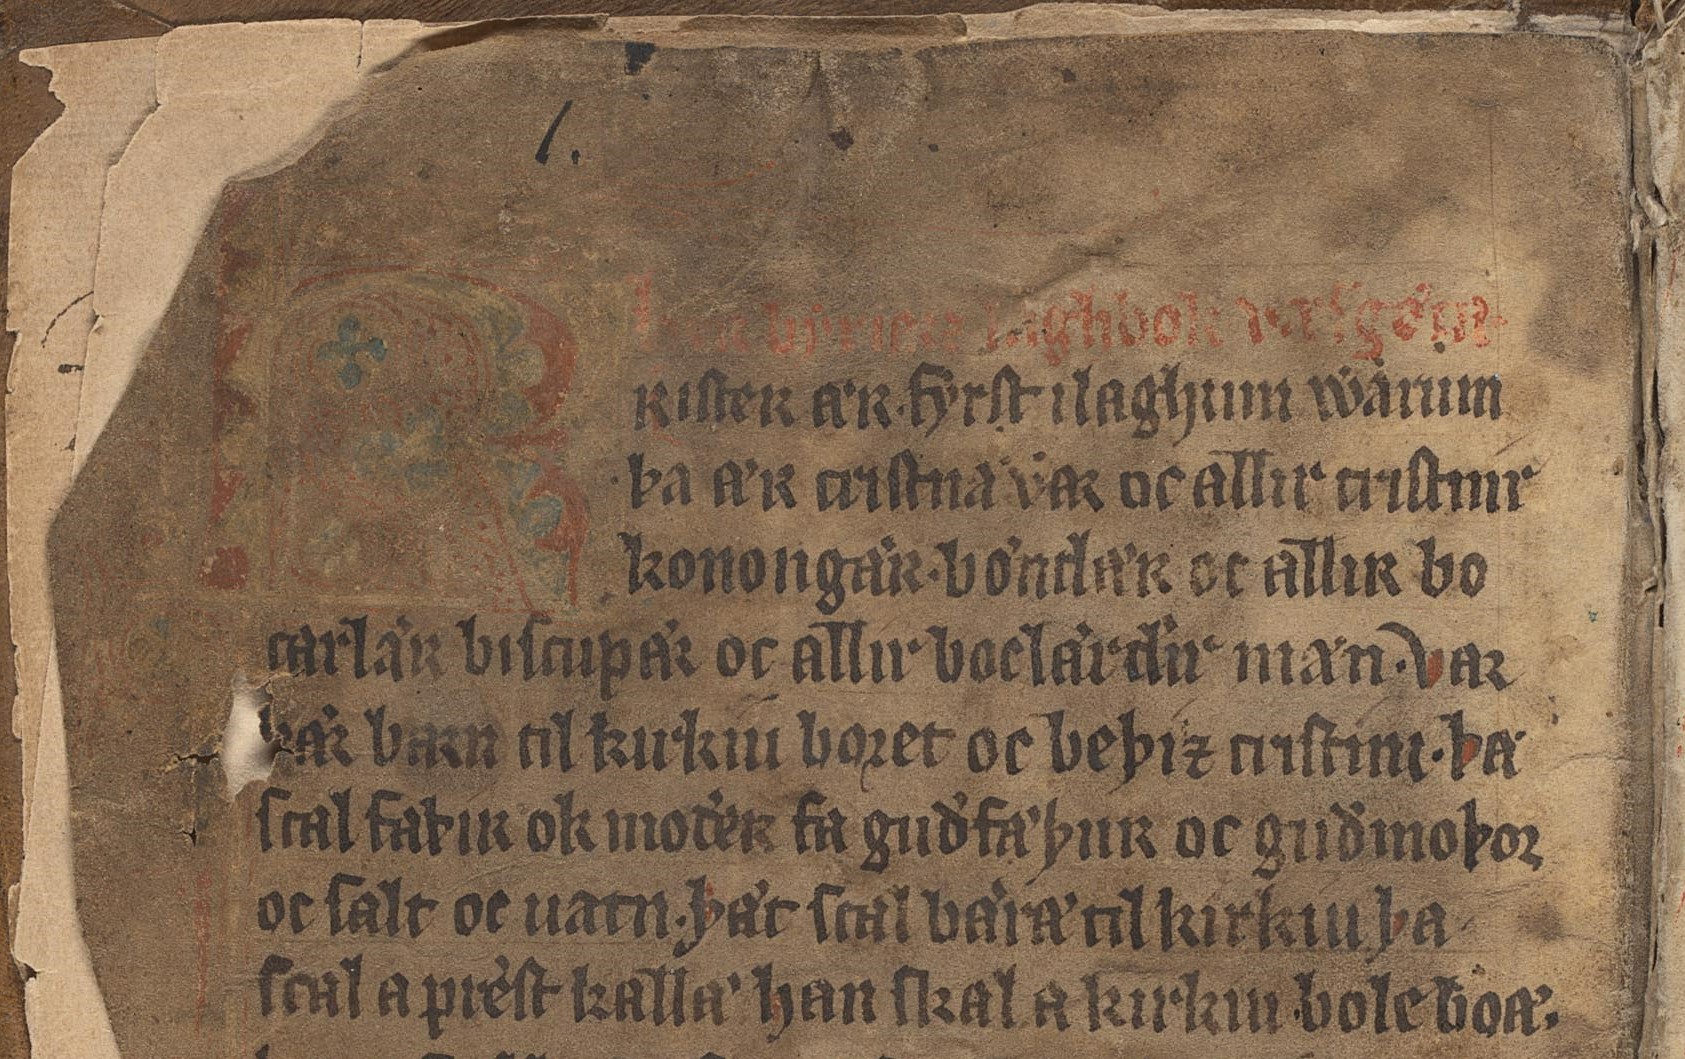 1.
byriæs laghbok
krister ær fyrst i laghum warum
þa ær cristna var oc allir cristnir
konongær bøndær oc allir bo
carlær biscupær oc allir boclærdir mæn var
þær barn til kirkiu boret oc beþiz cristini þa
scal faþir ok moþer fa guðfæþur oc guðmoþor
oc salt oc uatn þæt scal bæræ til kirkiu þa
scal a prest kallæ han skal a kirkiu bole boæ